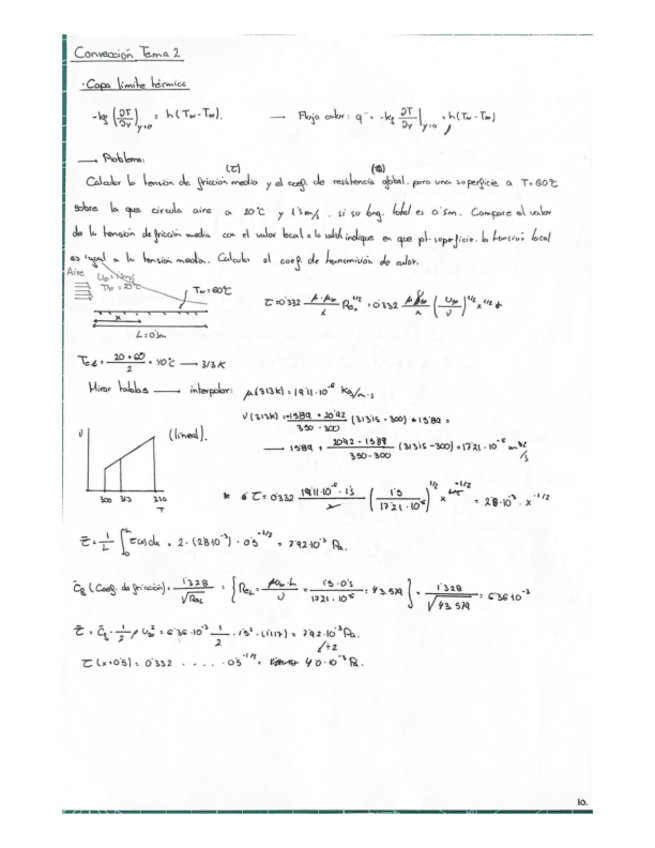 Convección Tema 2
· Capa límite térmica
-kf (∂T/∂y)y=0 = h(Tw - T∞). → Flujo calor: q'' = -kf ∂T/∂y |y=0 = h(Tw - T∞)
→ Problema:
(τ)
Calcular la tensión de fricción media y el coef. de resistencia global. para una superficie a T=60ºC
sobre la que circula aire a 20ºC y 1'5m/s. si su long. total es 0'5m. Compare el valor
de la tensión de fricción media con el valor local a la salida indique en que pt. superficie. la tensión local
es igual a la tensión media. Calcular el coef de transmisión de calor.
Aire
T∞ = 20ºC
Tw = 60ºC
x
L = 0'5m
τ = 0'332 μ·u∞/x Rex^1/2 = 0'332 μ u∞/x (u∞/ν)^1/2 x^1/2 *
= 20 + 60 / 2 = 40ºC → 313K
Mirar tablas → interpolar: μ(313K) = 19'11·10^-6 Kg/m·s
ν(313K) = -15'89 + 20'92 / 350 - 300 (313'15 - 300) + 15'89 =
→ 15'89 + 20'92 - 15'89 / 350 - 300 (313'15 - 300) = 17'21·10^-6 m²/s
ν
(lineal).
300 313 350
T
* τ = 0'332 19'11·10^-6 · 1'5 / x (1'5 / 17'21·10^-6)^1/2 x^+1/2 = 2'8·10^-3 · x^-1/2
τ̄ = 1/L ∫0^L τ(x)dx = 2·(2'8·10^-3)·0'5^-1/2 = 7'92·10^-3 Pa.
C̄f (Coef. de fricción) = 1'328 / √ReL = { ReL = u∞·L / ν = 1'5·0'5 / 17'21·10^-6 = 43.579 } = 1'328 / √43.579 = 6'36·10^-3
τ̄ = C̄f · 1/2 ρ u∞² = 6'36·10^-3 1/2 · 1'5² · (1'117) = 7'92·10^-3 Pa.
τ(x=0'5) = 0'332 ..... 0'5^-1/2 = 4'0·10^-3 Pa.
10.